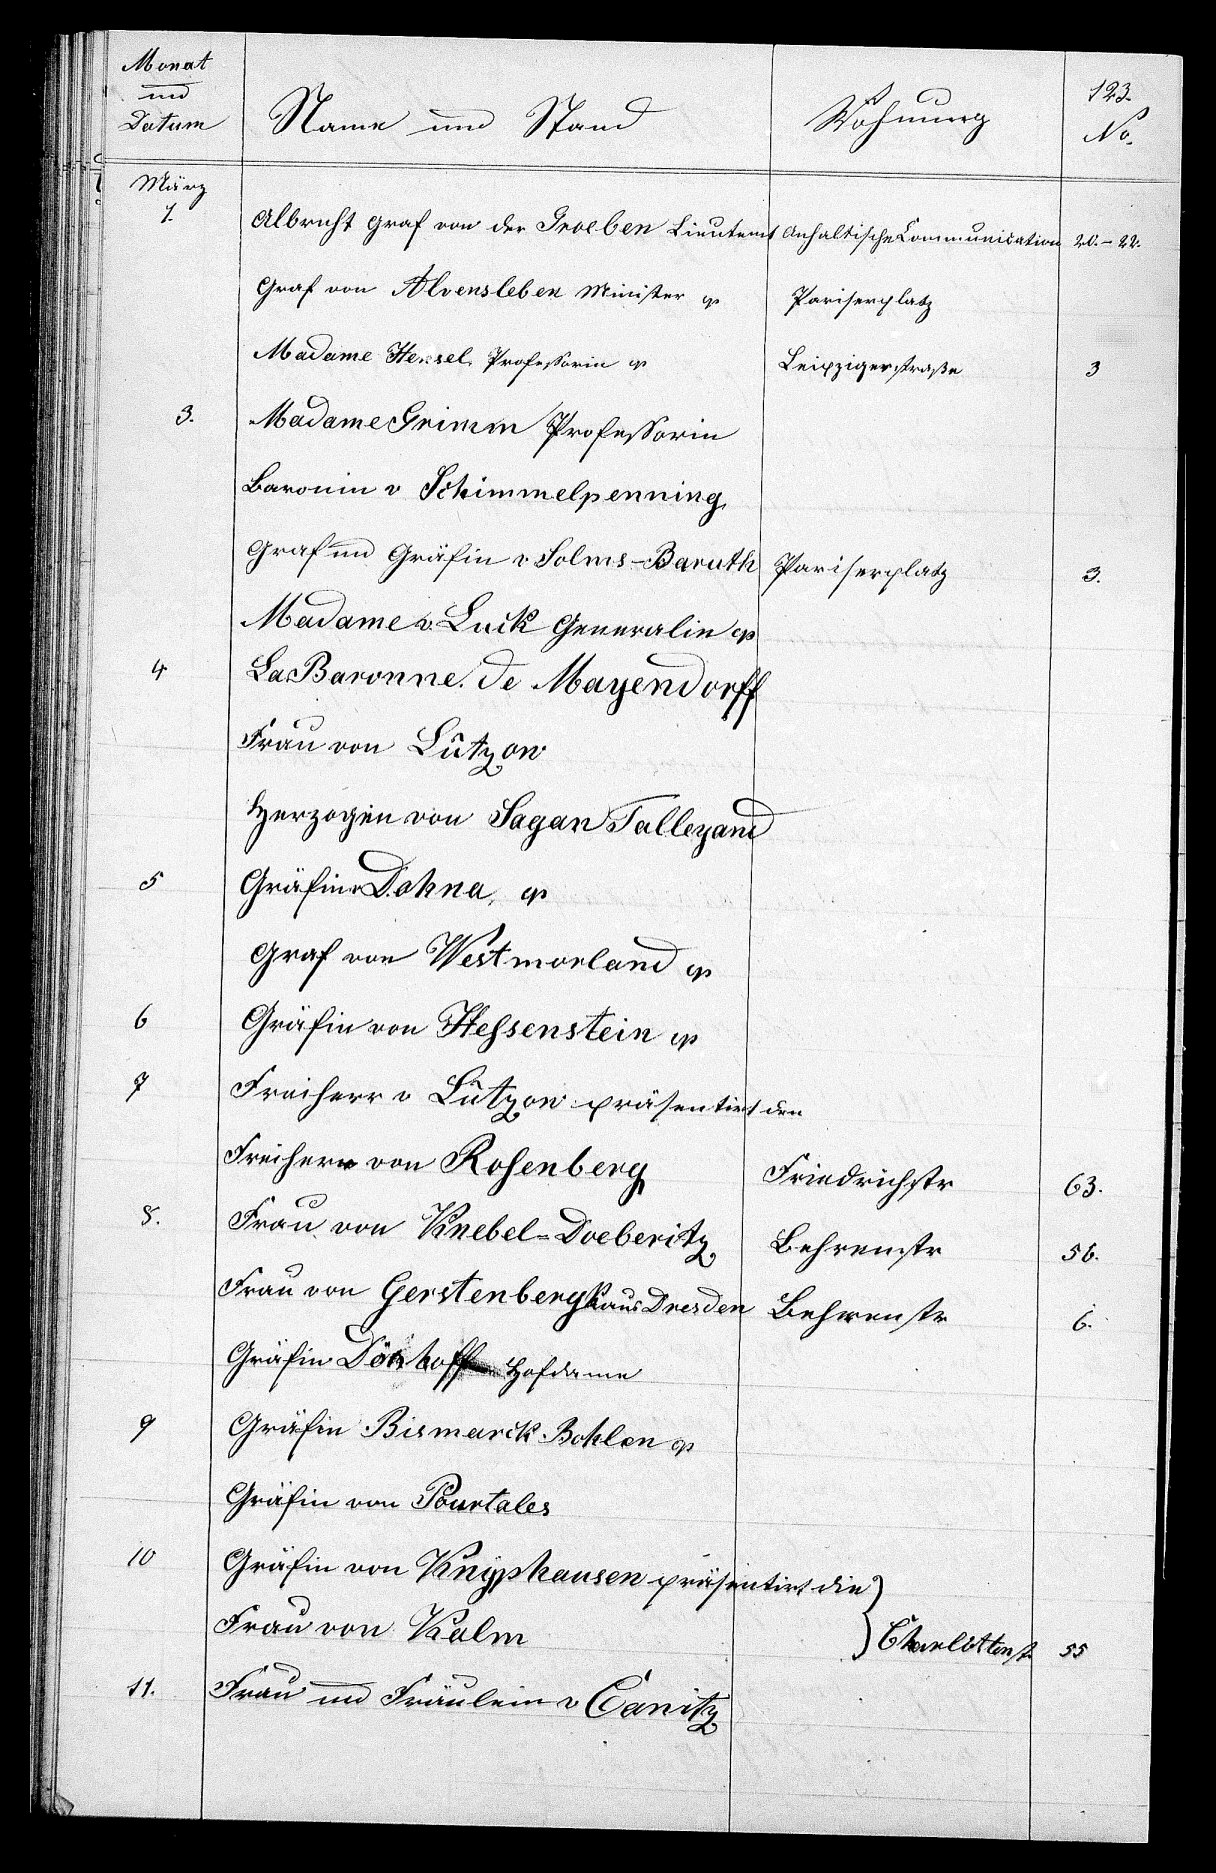 Monat
und
Datum
Name und Stand
Wohnung
123.
No.
März
1.
Albrecht Graf von der Groeben Lieutenant Anhaltische Communication 20.-22.
Graf von Alvensleben Minister p Pariserplatz
Madame Hensel, Professorin p Leipzigerstraße 3
3. Madame Grimm Professorin
Baronin v Schimmelpenning
Graf und Gräfin v Solms-Baruth Pariserplatz 3.
Madame v. Luck Generalin p
4 La Baronne de Mayendorff
Frau von Lützow
Herzogin von Sagan Talleyand
5 Gräfin Dohna, p
Graf von Westmorland p
6 Gräfin von Hessenstein p
7 Freiherr v Lützow präsentirt den
Freiherr von Rosenberg Friedrichstr 63.
8. Frau von Knebel-Doeberitz Behrenstr 56.
Frau von Gerstenbergk aus Dresden Behrenstr 6.
Gräfin Dönhoff Hofdame
9 Gräfin Bismarck-Bohlen p
Gräfin von Pourtales
10 Gräfin von Knyphausen präsentirt die
Frau von Kalm Charlottenst. 55
11. Frau und Fräulein v Canitz